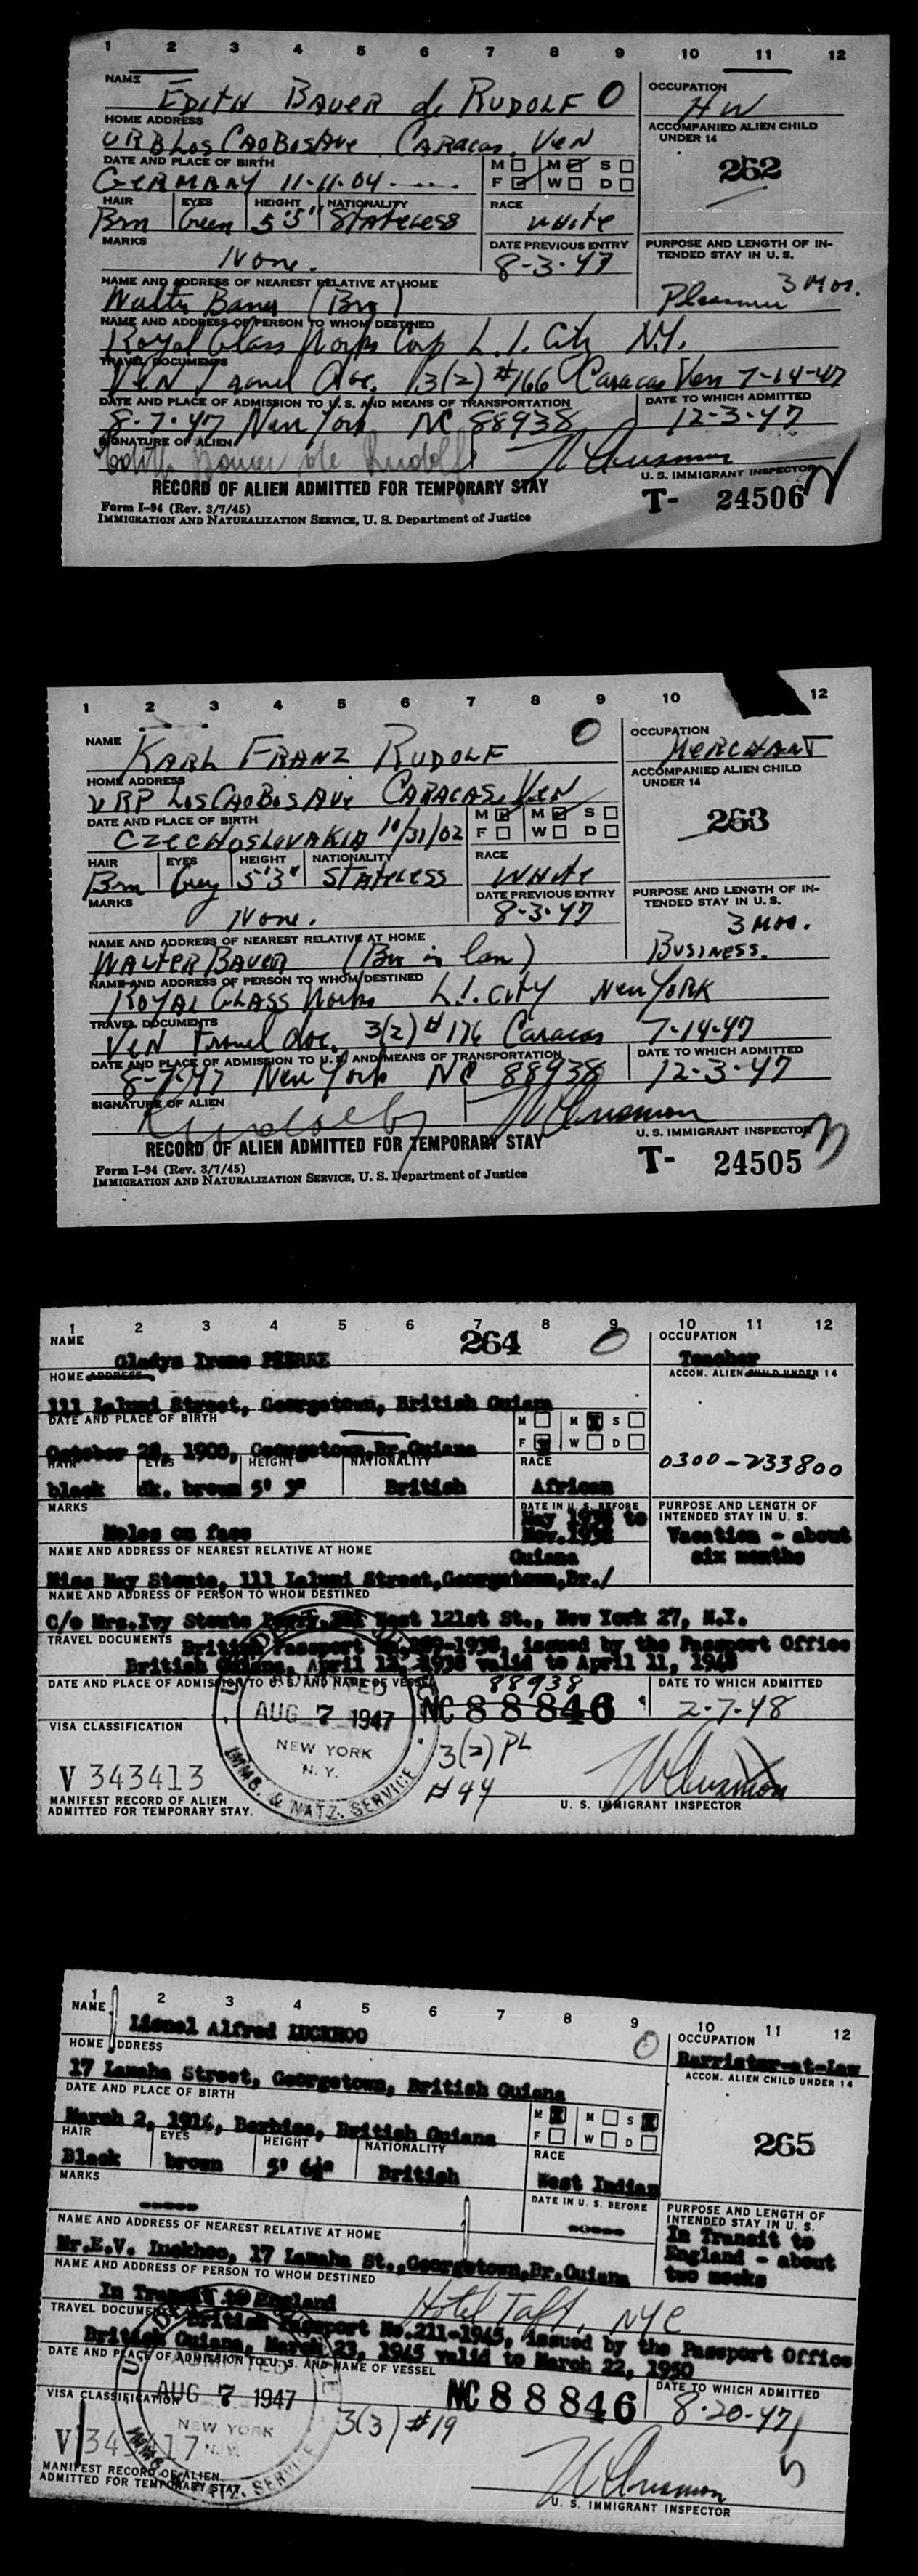 1 2 3 4 5 6 7 8 9 10 11 12
NAME EDITH BAUER de RUDOLF O OCCUPATION HW
HOME ADDRESS URB LOS CAOBOS AVE CARACAS, VEN ACCOMPANIED ALIEN CHILD UNDER 14
262
DATE AND PLACE OF BIRTH GERMANY 11-11-04 M M S
F W D
HAIR Brn EYES Green HEIGHT 5'5" NATIONALITY STATELESS RACE WHITE
MARKS None. DATE PREVIOUS ENTRY 8-3-47 PURPOSE AND LENGTH OF INTENDED STAY IN U. S.
3 Mos.
Pleasure
NAME AND ADDRESS OF NEAREST RELATIVE AT HOME
Walter Bauer (Bro)
NAME AND ADDRESS OF PERSON TO WHOM DESTINED
Royal Glass Works Corp L. I. City N.Y.
TRAVEL DOCUMENTS
VEN Travel Doc. 3(2) #166 Caracas Ven 7-14-47
DATE AND PLACE OF ADMISSION TO U. S. AND MEANS OF TRANSPORTATION DATE TO WHICH ADMITTED
8-7-47 New York NC 88938 12-3-47
SIGNATURE OF ALIEN Edith Bauer de Rudolf
U. S. IMMIGRANT INSPECTOR
RECORD OF ALIEN ADMITTED FOR TEMPORARY STAY T- 24506
Form I-94 (Rev. 3/7/45)
IMMIGRATION AND NATURALIZATION SERVICE, U. S. Department of Justice
1 2 3 4 5 6 7 8 9 10 12
NAME KARL FRANZ RUDOLF O OCCUPATION MERCHANT
HOME ADDRESS URP LOS CAOBOS AVE CARACAS, VEN ACCOMPANIED ALIEN CHILD UNDER 14
263
DATE AND PLACE OF BIRTH CZECHOSLOVAKIA 10/31/02 M M S
F W D
HAIR Brn EYES Grey HEIGHT 5'3" NATIONALITY STATELESS RACE WHITE
MARKS None. DATE PREVIOUS ENTRY 8-3-47 PURPOSE AND LENGTH OF INTENDED STAY IN U. S.
3 Mos.
BUSINESS.
NAME AND ADDRESS OF NEAREST RELATIVE AT HOME
WALTER BAUER (Bro in law)
NAME AND ADDRESS OF PERSON TO WHOM DESTINED
ROYAL GLASS Works L.I. CITY New YORK
TRAVEL DOCUMENTS
VEN Travel doc. 3(2) # 176 Caracas 7-14-47
DATE AND PLACE OF ADMISSION TO U. S. AND MEANS OF TRANSPORTATION DATE TO WHICH ADMITTED
8-7-47 New York NC 88938 12-3-47
SIGNATURE OF ALIEN
U. S. IMMIGRANT INSPECTOR
RECORD OF ALIEN ADMITTED FOR TEMPORARY STAY T- 24505
Form I-94 (Rev. 3/7/45)
IMMIGRATION AND NATURALIZATION SERVICE, U. S. Department of Justice
1 2 3 4 5 6 7 8 9 10 11 12
NAME 264 O OCCUPATION
Gladys Irene PIERRE Teacher
HOME ADDRESS ACCOM. ALIEN CHILD UNDER 14
111 Lalumi Street, Georgetown, British Guiana
DATE AND PLACE OF BIRTH M M S
October 28, 1900, Georgetown, Br. Guiana F W D
HAIR EYES HEIGHT NATIONALITY RACE 0300-233800
black dk. brown 5' 3" British African
MARKS DATE IN U. S. BEFORE PURPOSE AND LENGTH OF INTENDED STAY IN U. S.
Moles on face May 1938 to Nov. 1938 Vacation - about six months
NAME AND ADDRESS OF NEAREST RELATIVE AT HOME Guiana
Miss May Stoute, 111 Lalumi Street, Georgetown, Br./
NAME AND ADDRESS OF PERSON TO WHOM DESTINED
C/o Mrs. Ivy Stoute West 121st St., New York 27, N.Y.
TRAVEL DOCUMENTS British Passport issued by the Passport Office
British Guiana, April 12, 1938 valid to April 11, 1948
DATE AND PLACE OF ADMISSION TO U. S. AND NAME OF VESSEL DATE TO WHICH ADMITTED
88938
NC 88846 2-7-48
ADMITTED
AUG 7 1947
NEW YORK
N. Y.
IMMG. & NATZ. SERVICE
VISA CLASSIFICATION 3(2) PL
V 343413 #44
MANIFEST RECORD OF ALIEN
ADMITTED FOR TEMPORARY STAY. U. S. IMMIGRANT INSPECTOR
1 2 3 4 5 6 7 8 9 10 11 12
NAME Lionel Alfred LUCKHOO O OCCUPATION
Barrister-at-Law
HOME ADDRESS ACCOM. ALIEN CHILD UNDER 14
17 Lamaha Street, Georgetown, British Guiana
DATE AND PLACE OF BIRTH M M S
March 2, 1914, Berbice, British Guiana F W D 265
HAIR EYES HEIGHT NATIONALITY RACE
Black brown 5' 6½" British West Indian
MARKS DATE IN U. S. BEFORE PURPOSE AND LENGTH OF INTENDED STAY IN U. S.
----- ----- In Transit to England - about two weeks
NAME AND ADDRESS OF NEAREST RELATIVE AT HOME
Mr. E.V. Luckhoo, 17 Lamaha St., Georgetown, Br. Guiana
NAME AND ADDRESS OF PERSON TO WHOM DESTINED
In Transit to England Hotel Taft, NYC
TRAVEL DOCUMENTS British Passport No. 211-1945, issued by the Passport Office
British Guiana, March 23, 1945 valid to March 22, 1950
DATE AND PLACE OF ADMISSION TO U. S. AND NAME OF VESSEL DATE TO WHICH ADMITTED
NC 88846 8-20-47
ADMITTED
AUG 7 1947
NEW YORK
N. Y.
SERVICE
VISA CLASSIFICATION 3(3) #19
MANIFEST RECORD OF ALIEN
ADMITTED FOR TEMPORARY STAY. U. S. IMMIGRANT INSPECTOR